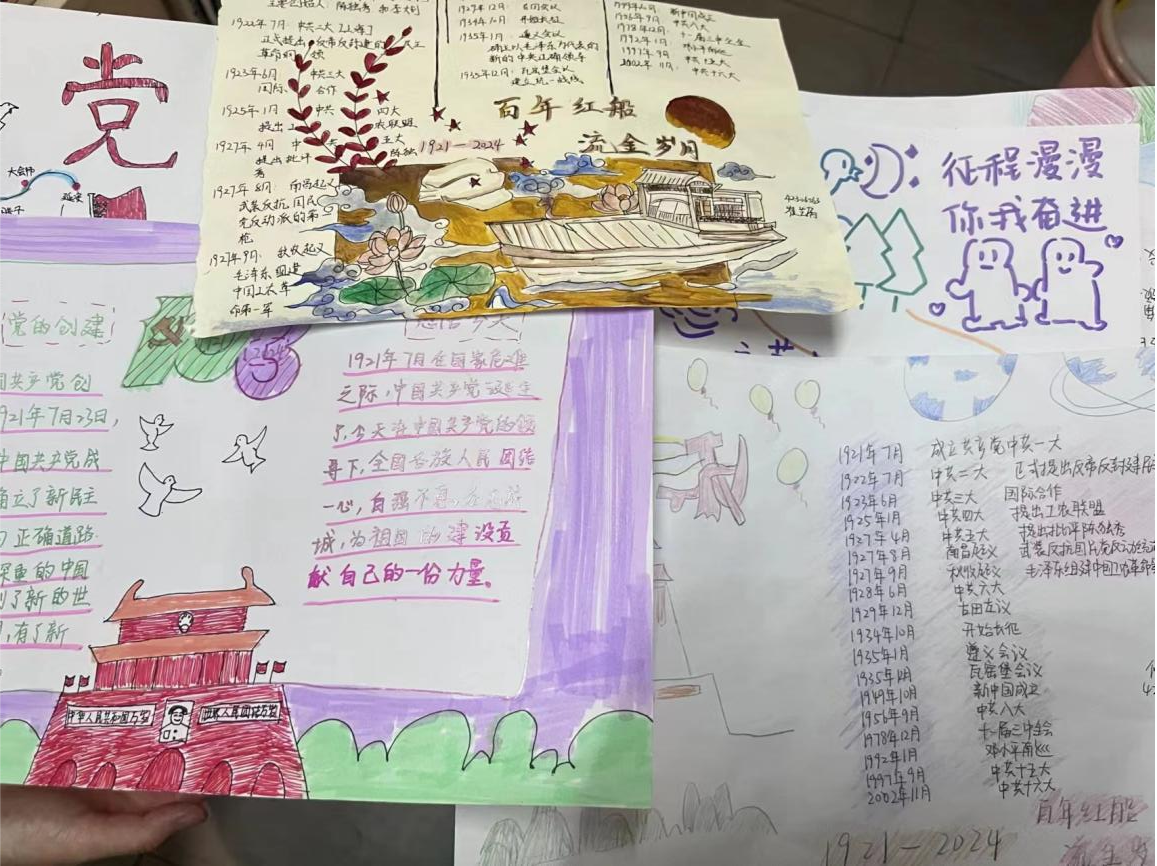 党
大会师
延安
1922年7月 中共二大
1923年6月 中共三大
国际 合作
1925年1月 中共 四大
提出工 农联盟
1927年4月 中共 五大
提出批评 陈独
秀
1927年8月: 南昌起义
武装反抗国民
党反动派的第
枪
1927年9月: 秋收起义
毛泽东组建
中国工农革
命第一军
1929年12月: 古田会议
1934年10月 开始长征
1935年1月 遵义会议
确立以毛泽东为代表的
新的中央正确领导
1935年12月: 瓦窑堡会议
建立统一战线
新中国成立
1956年9月 中共八大
1978年12月 十一届三中全会
1992年1月 邓小平南巡
1997年9月 中共十五大
2002年11月 中共十六大
百年红船
流金岁月
1921-2024
征程漫漫
你我奋进
党的创建
国共产党创
921年7月23日,
中国共产党成
确立了新民主
正确道路
深重的中国
到了新的世
,有了新
1921年7月在国家危难
之际,中国共产党诞生
了,今天在中国共产党的领
导下,全国各族人民团结
一心,自强不息,众志成
城,为祖国的建设贡
献自己的一份力量。
中华人民共和国万岁
世界人民团结万岁
1921年7月 成立共产党中共一大
1922年7月 中共二大 正式提出反帝反封建
1923年6月 中共三大 国际合作
1925年1月 中共四大 提出工农联盟
1927年4月 中共五大 提出批评陈独秀
1927年8月 南昌起义 武装反抗国民党反动派
1927年9月 秋收起义 毛泽东组建中国工农革命
1928年6月 中共六大
1929年12月 古田会议
1934年10月 开始长征
1935年1月 遵义会议
1935年12月 瓦窑堡会议
1949年10月 新中国成立
1956年9月 中共八大
1978年12月 十一届三中全会
1992年1月 邓小平南巡
1997年9月 中共十五大
2002年11月 中共十六大
百年红船
1921-2024